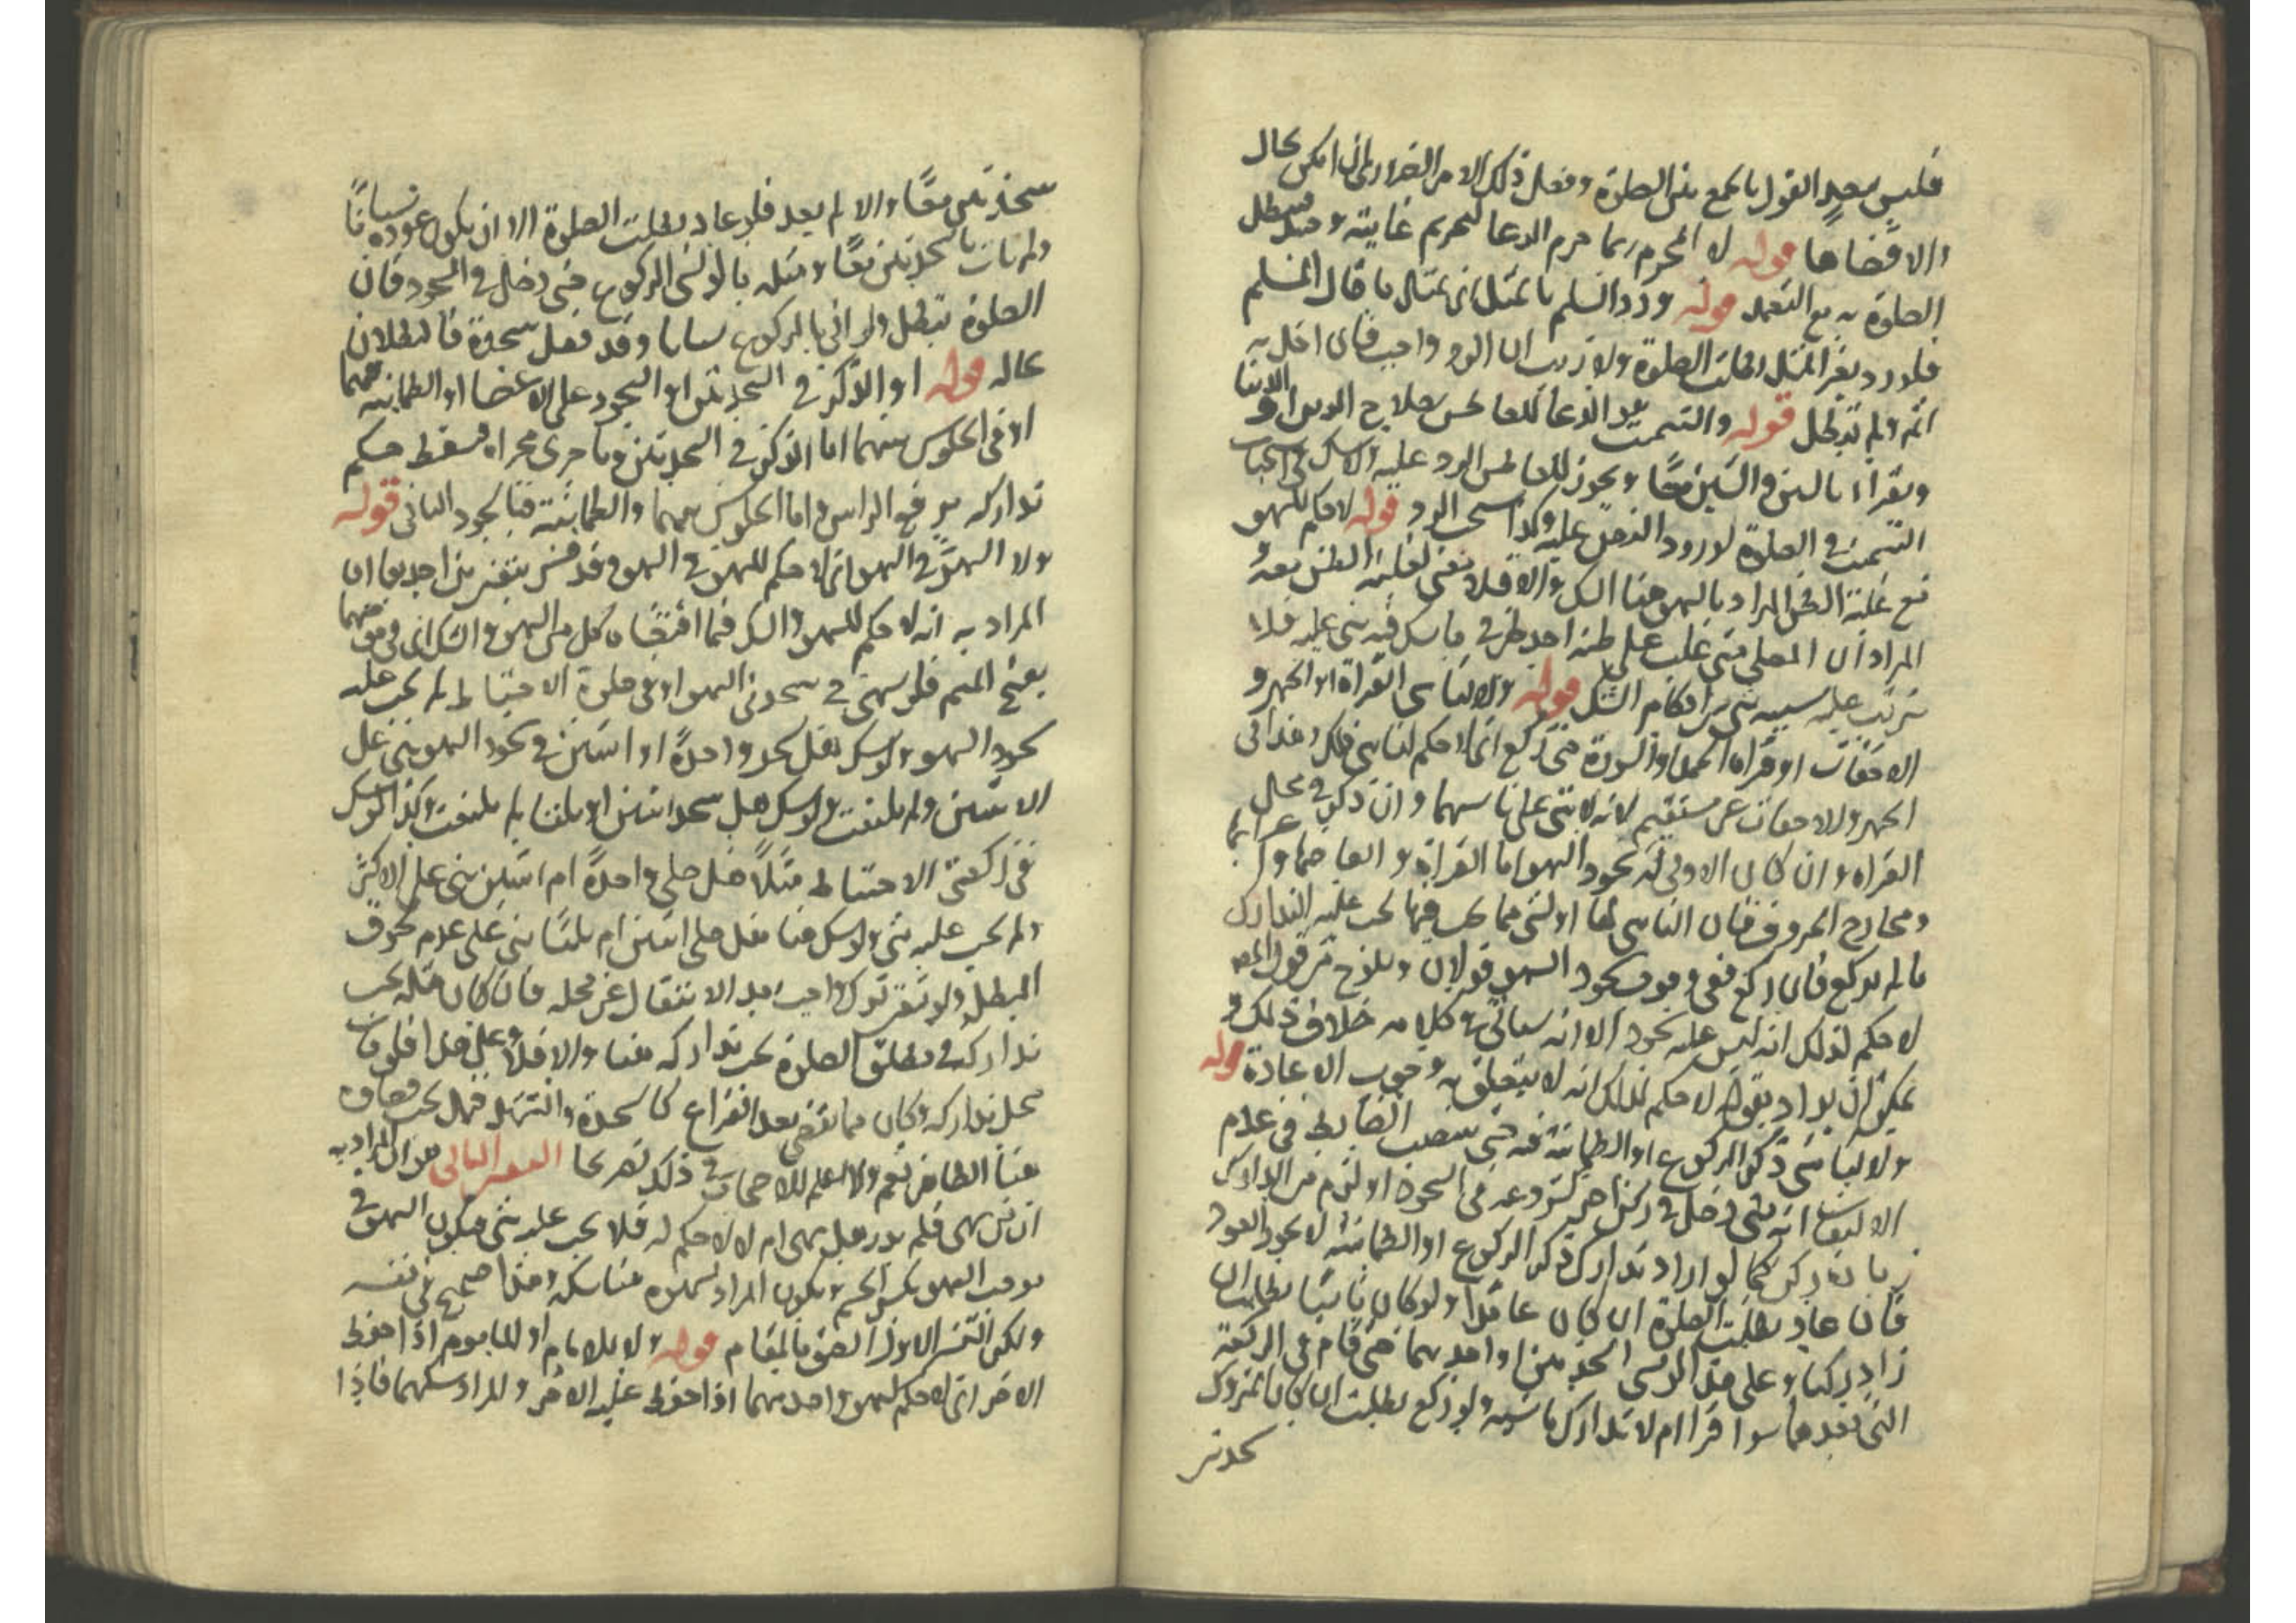 فليس ببعيد القول بالجمع بين الصلوة وفعل ذلك الامر الضروري ان امكن بحال
والا قضاها قوله لا المحرم ربما حرم الدعا لتحريم غايته وحينئذ فتبطل
الصلوة به مع التعمد قوله ورد السلم بالمثل اي بمثل ما قال المسلم
فلو رد بغير المثل بطلت الصلوة ولا ريب ان الرد واجب فان اخل به
اثم ولم تبطل قوله والتسميت هو الدعا للعاطس بصلاح الدين او الدنيا
ويقراء بالسين والشين معًا ويجوز للعاطس الرد عليه الاشكال في استحباب
التسميت في الصلوة لورود النص عليه وكذا استحباب الرد قوله لا حكم للسهو
مع غلبة الظن المراد بالسهو هنا الشك والا فلا معنى لغلبة الظن معه و
المراد ان المصلي متى غلب على ظنه احد طرفي ما شك فيه بنى عليه فلا
يترتب عليه بسببه شي من احكام الشك قوله ولا لناسي القراة او الجهر و
الاخفات او قراه الحمد او السورة حتى ركع اي لا حكم لناسي ذلك وهذا في
الجهر والاخفات غير مستقيم لانه لا شي على ناسيهما وان ذكر في محال
القراة وان كان الاولى له سجود السهو اما القراة وابعاضها واعرابها
ومخارج الحروف فان الناسي لها او لشي مما يجب فيها يجب عليه التدارك
ما لم يركع فان ركع ففي وجوب سجود السهو قولان ويلوح من قول المص
لا حكم لذلك انه ليس عليه سجود الا انه سياتي في كلامه خلاف ذلك و
يمكن ان يراد بقوله لا حكم لذلك انه لا يتعلق به وجوب الاعادة قوله
ولا لناسي ذكر الركوع او الطمانينة فيه حتى ينتصب الضابط في عدم
الالتفات انه متى دخل في ركن اخر كشروعه في السجود او لزم من التدارك
زيادة ركن كما لو اراد تدارك ذكر الركوع او الطمانينة لا يجوز العود
فان عاد بطلت الصلوة ان كان عامدا ولو كان ناسيا بطلت ان
زاد ركنا وعلى هذا لو نسي السجدتين او احديهما حتى قام في الركعة
التي بعدهما سوا قرا ام لا تدارك ما نسيه ولو ركع بطلت ان كان المتروك
سجدتين
سجدتين معًا والا لم يعد فلو عاد بطلت الصلوة الا ان يكون عوده نسيانًا
ولم يات بالسجدتين معًا ومثله ما لو نسي الركوع حتى دخل في السجود فان
الصلوة تبطل ولو اتى بالركوع ناسيا وقد فعل سجدة فالبطلان
بحاله قوله او الذكر في السجدتين او السجود على الاعضا او الطمانينة فيهما
او في الجلوس بينهما اما الذكر في السجدتين وما جرى مجراه فيسقط حكم
تداركه برفع الراس واما الجلوس بينهما والطمانينة فبالسجود الثاني قوله
ولا السهو في السهو اي لا حكم للسهو في السهو وقد فسر بتفسيرين احدهما ان
المراد به انه لا حكم للسهو والشك فيما اقتضاه كل من السهو والشك اي في موجبهما
بفتح الجيم فلو سهى في سجدتي السهو او في صلوة الاحتياط لم يجب عليه
سجود السهو ولو شك هل سجد واحدة او اثنتين في سجود السهو بنى على
الاثنتين ولم يلتفت ولو شك هل سجد اثنتين او ثلثا لم يلتفت وكذا لو شك
في ركعتي الاحتياط مثلًا هل صلى واحدة ام اثنتين بنى على الاكثر
ولم يجب عليه شي ولو شك هنا هل صلى اثنتين ام ثلثًا بنى على عدم لحوق
المبطل ولو تيقن ترك واجب بعد الانتقال عن محله فان كان مثله يجب
تداركه في مطلق الصلوة يجب تداركه هنا والا فلا وعلى هذا فلو فات
محل تداركه وكان مما يقضى بعد الفراغ كالسجدة والتشهد فهل يجب قضاوه
هنا الظاهر نعم ولا اعلم للاصحاب في ذلك تصريحا التفسير الثاني هو ان المراد به
ان من سهى فلم يدر هل سهى ام لا لا حكم له فلا يجب عليه شي فيكون السهو في
موجب السهو بكسر الجيم ويكون المراد بالسهو هنا شكه وهذا صحيح في نفسه
ولكن التفسير الاول الصق بالمقام قوله ولا للامام او الماموم اذا حفظ
الاخر اي لا حكم لسهو واحد منهما اذا حفظ عليه الاخر والمراد شكهما فاذا